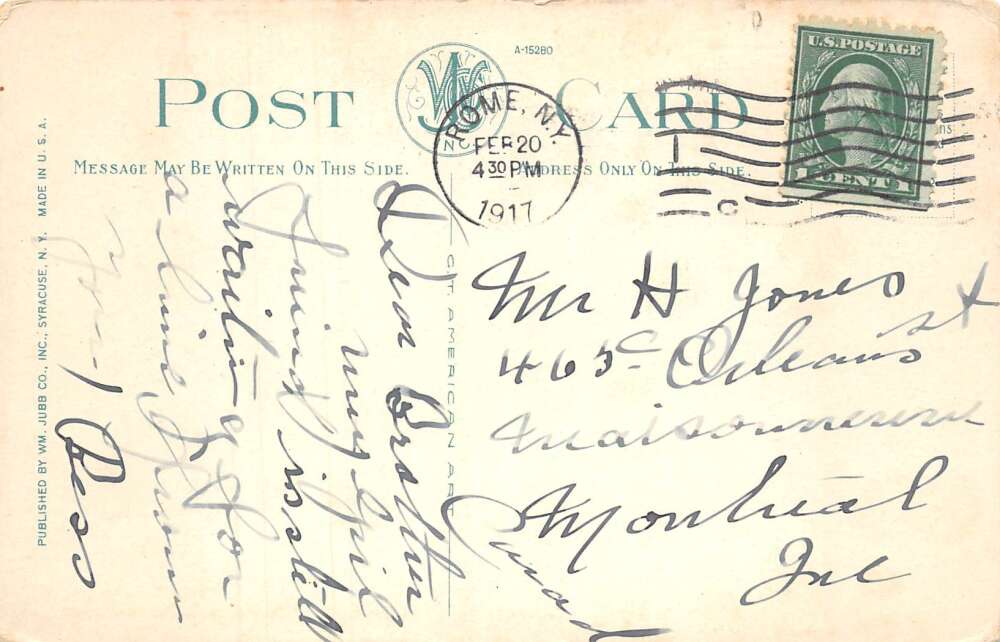 A-15280
POST CARD
MESSAGE MAY BE WRITTEN ON THIS SIDE.
ADDRESS ONLY ON THIS SIDE.
ROME, N.Y.
FEB 20
4 30 PM
1917
U.S. POSTAGE
1 CENT 1
PUBLISHED BY WM. JUBB CO., INC., SYRACUSE, N. Y. MADE IN U. S. A.
AMERICAN AR
Dear Brother
my
is still
waiting for
a line from
you
Bess
Mr H Jones
465c Orleans St
Maisonneuve
Montreal
Canad